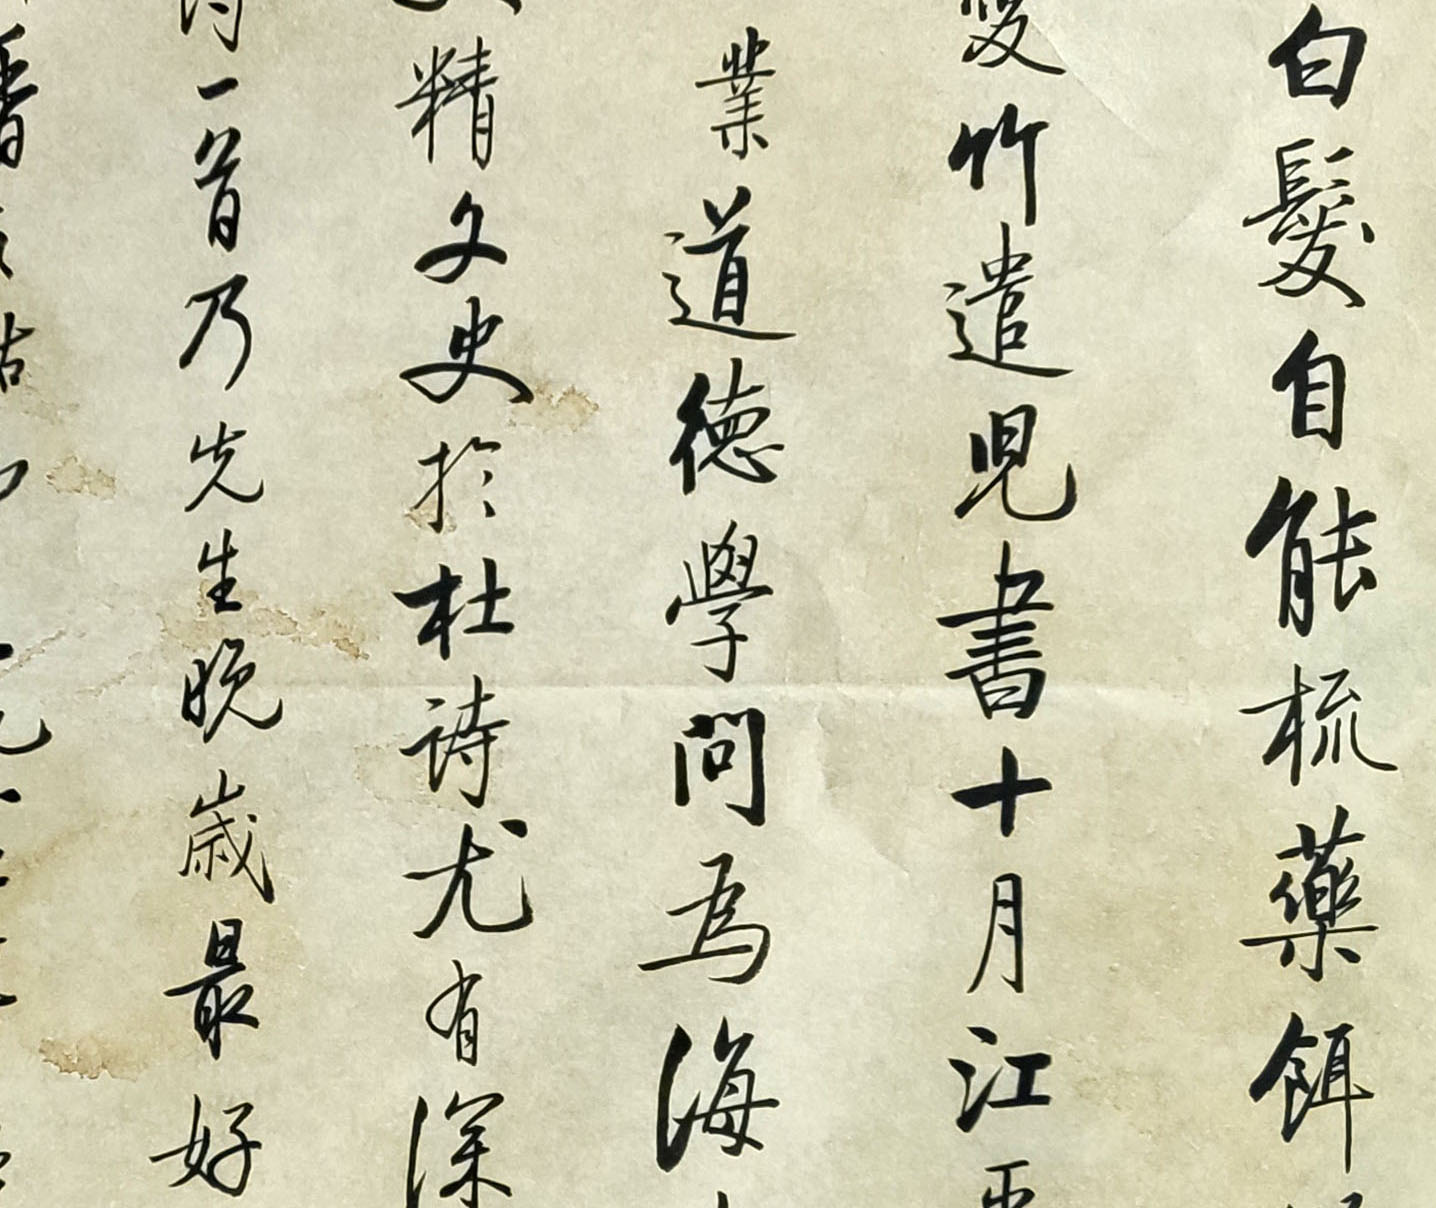 白髮自能梳藥餌
愛竹遣兒書十月江平
業道德學問為海
精文史於杜詩尤有深
詩一首乃先生晚歲最好